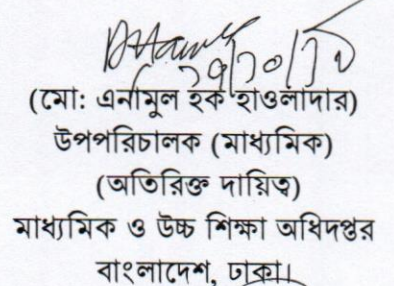 (মো: এনামুল হক হাওলাদার)
উপপরিচালক (মাধ্যমিক)
(অতিরিক্ত দায়িত্ব)
মাধ্যমিক ও উচ্চ শিক্ষা অধিদপ্তর
বাংলাদেশ, ঢাকা।